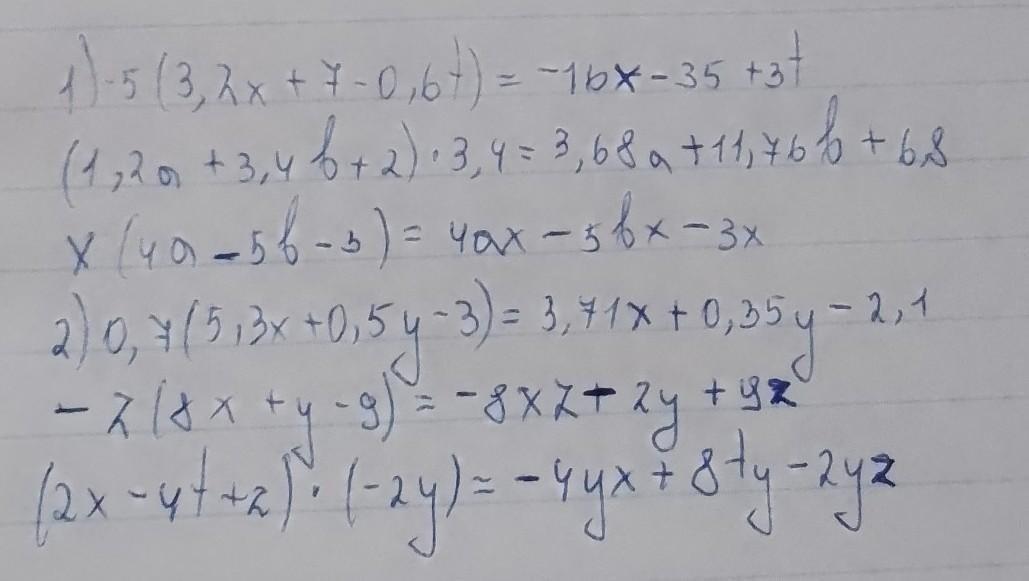 1) -5(3,2x + 7 - 0,6t) = -16x - 35 + 3t
(1,2a + 3,4b + 2) · 3,4 = 3,68a + 11,76b + 6,8
x(4a - 5b - 3) = 4ax - 5bx - 3x
2) 0,7(5,3x + 0,5y - 3) = 3,71x + 0,35y - 2,1
- z(8x + y - 9) = -8xz - zy + 9z
(2x - 4t + z) · (-2y) = -4yx + 8ty - 2yz